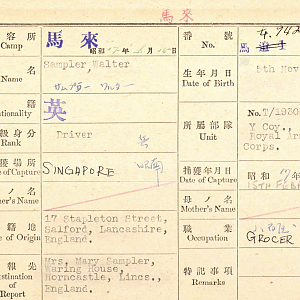 馬來
容所
Camp
馬來
昭和 17年
番号
No.
名
Name
Sampler, Walter
サムプラー ウルター
生年月日
Date of Birth
5th Nov
籍
Nationality
英
所屬部隊
Unit
No T/1930
Y Coy.,
Royal Army
Corps.
級身分
Rank
Driver
兵
獲場所
Place of Capture
SINGAPORE
捕獲年月日
Date of Capture
昭和 17
15TH FEB
ノ名
Father's Name
母ノ名
Mother's Name
籍地
Place of Origin
17 Stapleton Street,
Salford, Lancashire,
England.
職業
Occupation
GROCER
報先
Destination of
Report
Mrs. Mary Sampler,
Waring House,
Horncastle, Lincs.,
England.
特記事項
Remarks